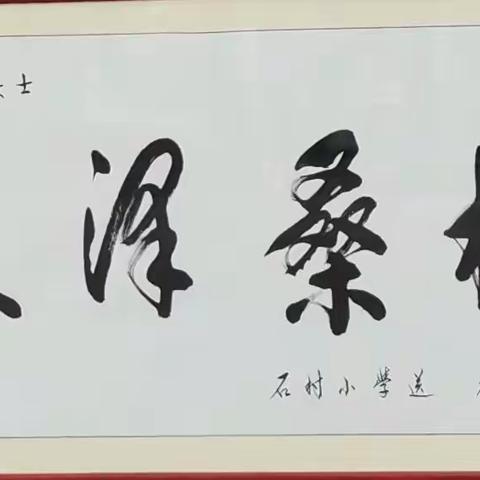 士
泽桑
石村小學送